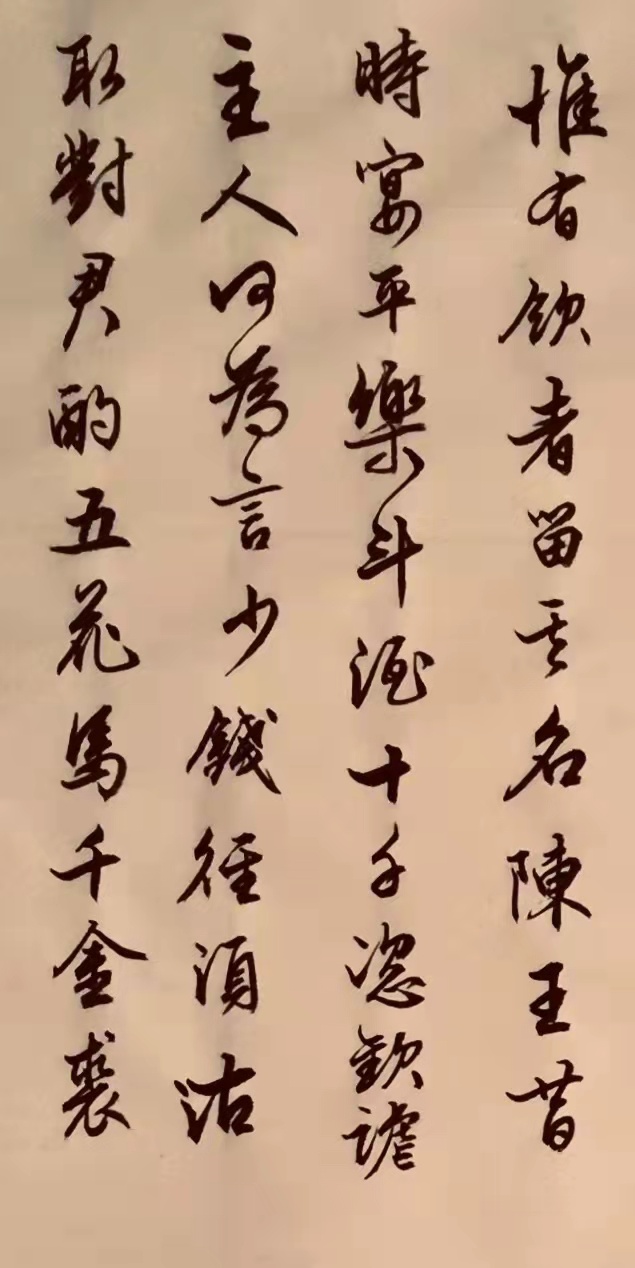 惟有飲者留其名陳王昔
時宴平樂斗酒十千恣歡謔
主人何為言少錢徑須沽
取對君酌五花馬千金裘